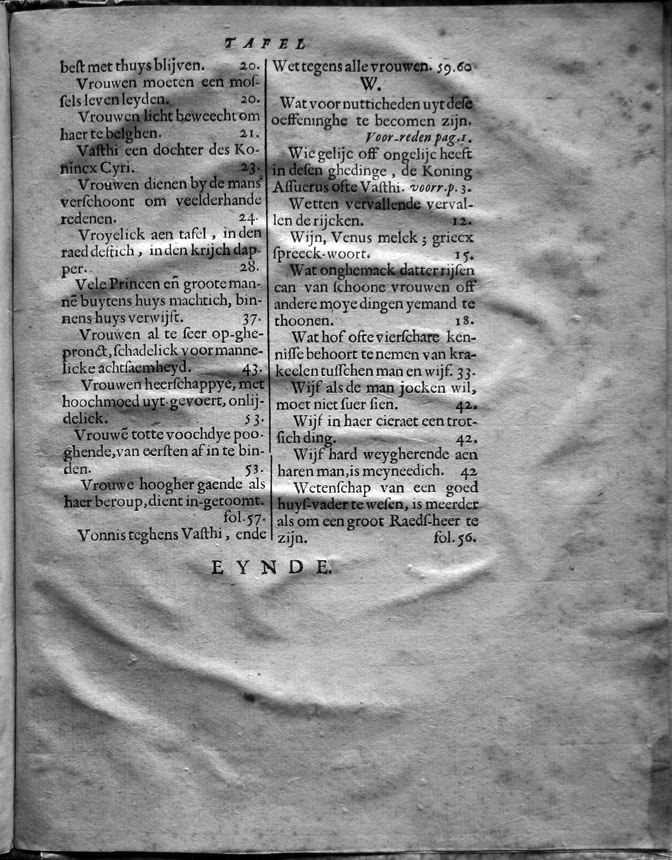 TAFEL
beſt met thuys blijven. 20.
Vrouwen moeten een moſ-
ſels leven leyden. 20.
Vrouwen licht beweecht om
haer te belghen. 21.
Vaſthi een dochter des Ko-
nincx Cyri. 23.
Vrouwen dienen by de mans
verſchoont om veelderhande
redenen. 24.
Vroyelick aen tafel, in den
raed deftich, in den krijch dap-
per. 28.
Vele Princen eñ groote man-
nẽ buytens huys machtich, bin-
nens huys verwijft. 37.
Vrouwen al te ſeer op-ghe-
pronct, ſchadelick voor manne-
licke achtſaemheyd. 43.
Vrouwen heerſchappye, met
hoochmoed uyt-gevoert, onlij-
delick. 53.
Vrouwẽ totte voochdye poo-
ghende, van eerſten af in te bin-
den. 53.
Vrouwe hoogher gaende als
haer beroup, dient in-getoomt.
fol. 57.
Vonnis teghens Vaſthi, ende
Wet tegens alle vrouwen. 59.60
W.
Wat voor nutticheden uyt deſe
oeffeninghe te becomen zijn.
Voor-reden pag. 1.
Wie gelijc off ongelijc heeft
in deſen ghedinge, de Koning
Aſſuerus ofte Vaſthi. voorr. p. 3.
Wetten vervallende verval-
len de rijcken. 12.
Wijn, Venus melck; griecx
ſpreeck-woort. 15.
Wat onghemack datter rijſen
can van ſchoone vrouwen off
andere moye dingen yemand te
thoonen. 18.
Wat hof ofte vierſchare ken-
niſſe behoort te nemen van kra-
keelen tuſſchen man en wijf. 33.
Wijf als de man jocken wil,
moet niet ſuer ſien. 42.
Wijf in haer cieraet een trot-
ſich ding. 42.
Wijf hard weygherende aen
haren man, is meyneedich. 42
Wetenſchap van een goed
huyſ-vader te weſen, is meerder
als om een groot Raedſ-heer te
zijn. fol. 56.
EYNDE.